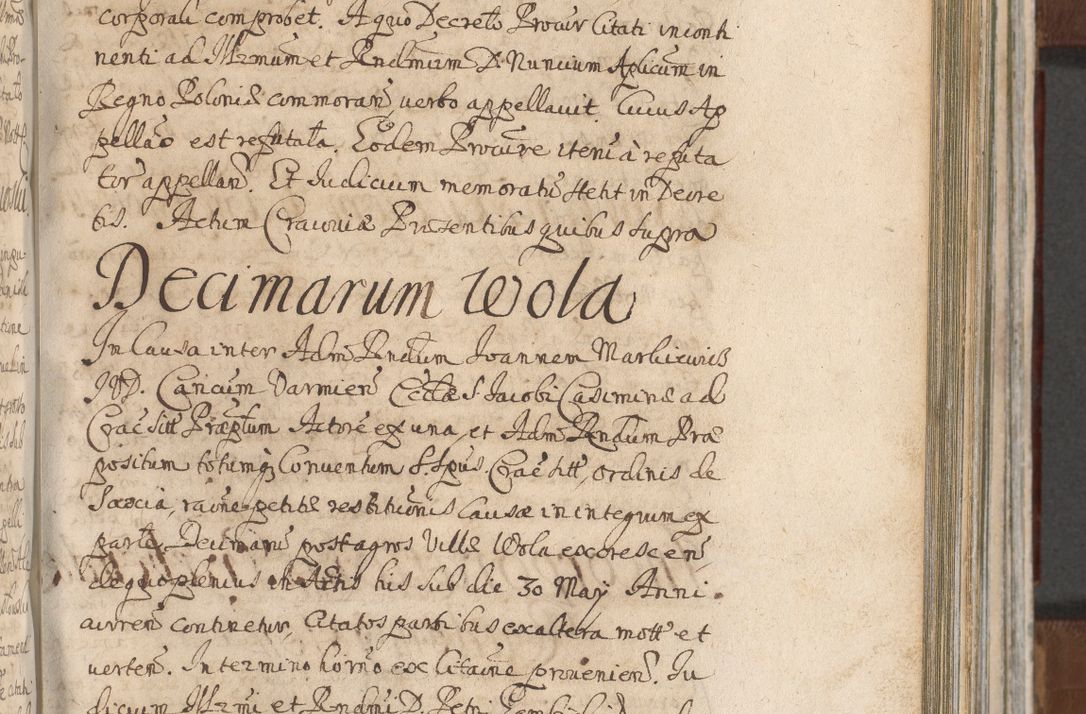 corporali comprobet. A quo Decreto Procur Citati inconti
nenti ad Illrmum et Rndmum D. Nuncium Aplicum in
Regno Poloniæ commoran verbo appellavit. Cuius Ap
pellao est refutata. Eodem Procure iteru à refuta
tor appellan. Et Iudicium memoratu stetit in Decre
tis. Actum Cracoviæ Præsentibus quibus supra
Decimarum Wola
In Causa inter Adm Rndum Joannem Markiewicz
IVD. Canicum Varmien Ecclæ S. Jacobi Casimiriæ ad
Crac sitt Præptum Actore ex una, et Adm Rndum Præ
positum totumq Conventum S. Spus Crac sitt, ordinis de
Saxia, raine petitæ restitutionis causæ in integrum ex
parte Decimaru post agros Villæ Wola excrescen
de quo plenius in Actis his sub die 30 May Anni
curren continetur, Citatos partibus ex altera mott et
verten. In termino horno ex Citaine provenien. Iu
dicium Illrmi et Rndmi D. Petri Gembicki